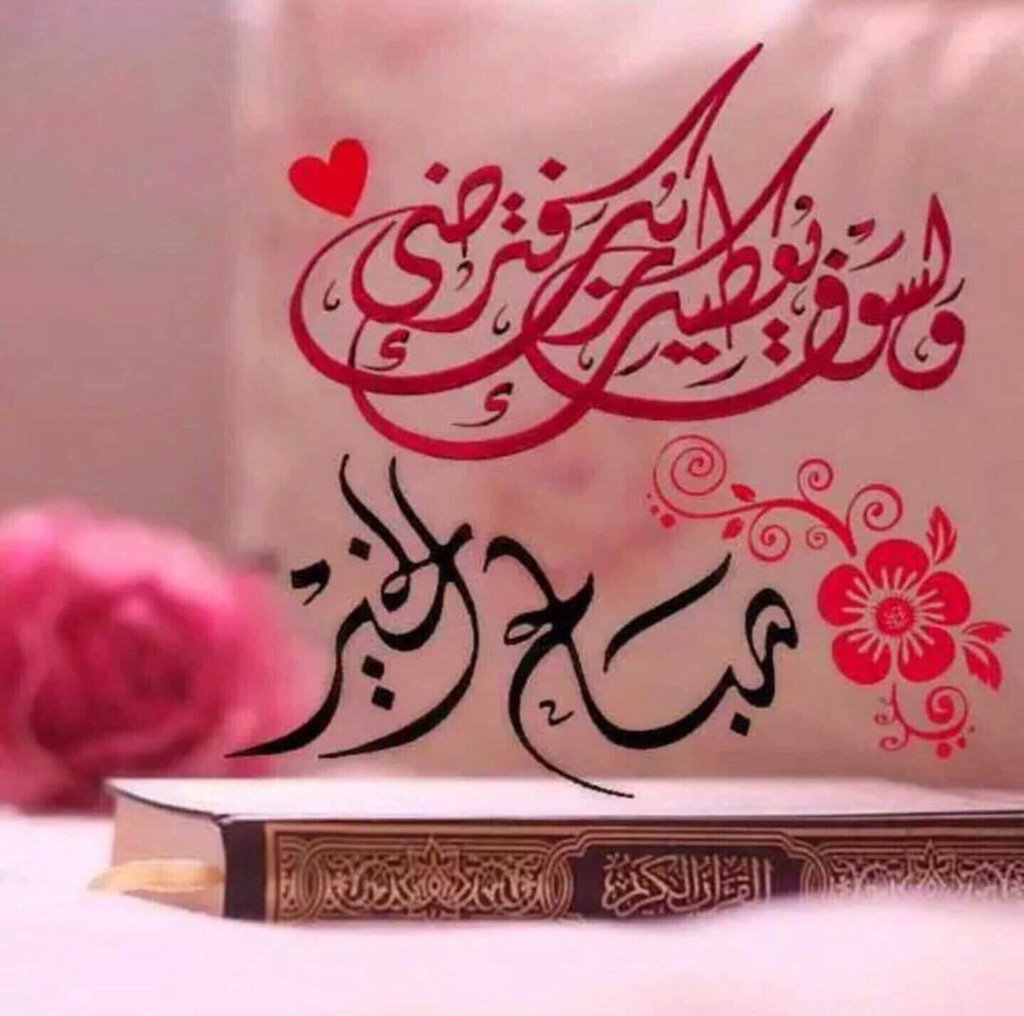 ولسوف يعطيك ربك فترضى
صباح الخير
القرآن الكريم